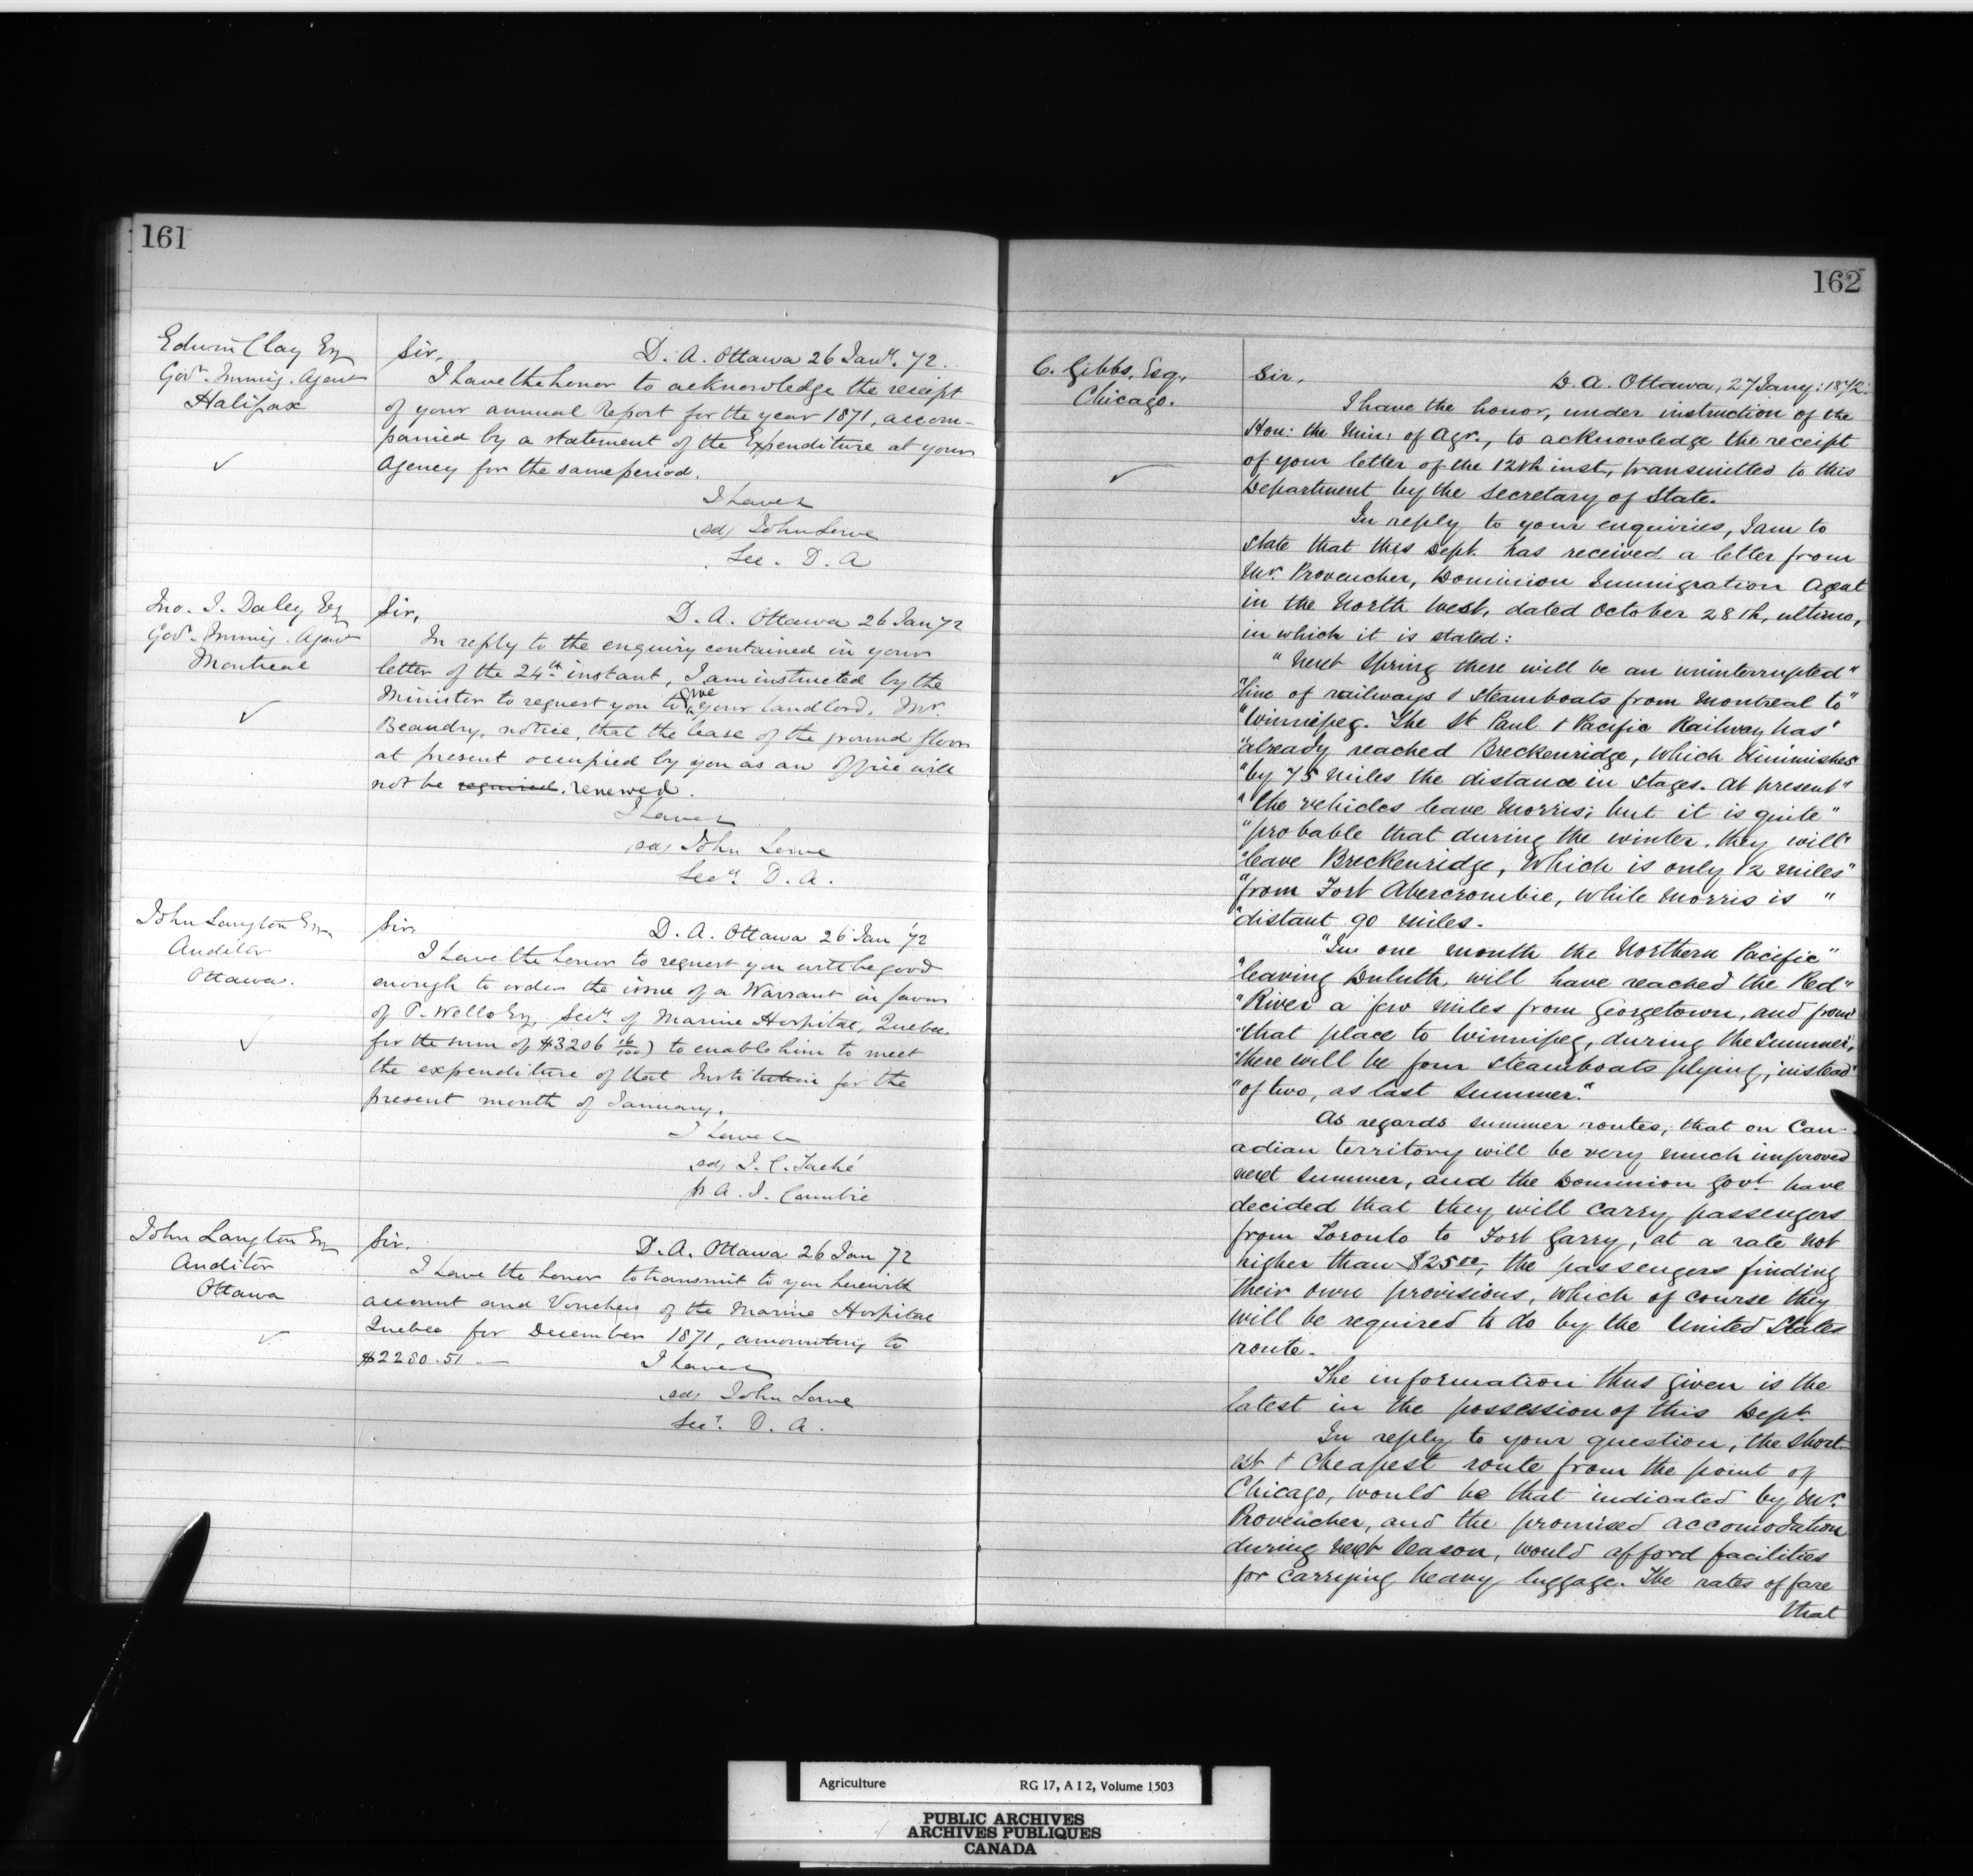 161
Edwin Clay Esq
Govt. Immig. Agent
Halifax
Sir, D. A. Ottawa 26 Jany. 72.
I have the honor to acknowledge the receipt
of your annual Report for the year 1871, accom-
panied by a statement of the Expenditure at your
Agency for the same period.
I have &
sd, John Lowe
Sec. D. A
Jno. J. Daley Esq
Govt. Immig. Agent
Montreal
Sir, D. A. Ottawa 26 Jan 72
In reply to the enquiry contained in your
letter of the 24th instant, I am instructed by the
Minister to request you to give your landlord, Mr.
Beaudry, notice, that the lease of the ground floor
at present occupied by you as an office will
not be required. renewed.
I have &
sd, John Lowe
Secy. D. A.
John Langton Esq
Auditor
Ottawa.
Sir, D. A. Ottawa 26 Jan '72
I have the honor to request you will be good
enough to order the issue of a Warrant in favor
of P. Wells Esq, Secy. of Marine Hospital, Quebec
for the sum of $3206 16/100) to enable him to meet
the expenditure of that Institution for the
present month of January.
I have &
sd, J. C. Taché
pr A. J. Cambie
John Langton Esq
Auditor
Ottawa
Sir. D. A. Ottawa 26 Jan 72
I have the honor to transmit to you herewith
account and Vouchers of the Marine Hospital
Quebec for December 1871, amounting to
$2280.51 — I have &
sd, John Lowe
Secy. D. A.
162
C. Gibbs, Esq.,
Chicago.
Sir, D. A. Ottawa, 27 Jany: 1872.
I have the honor, under instruction of the
Hon: the Min: of Agr., to acknowledge the receipt
of your letter of the 12th inst, transmitted to this
Department by the Secretary of State.
In reply to your enquiries, I am to
state that this Dept. has received a letter from
Mr. Provencher, Dominion Immigration Agent
in the North West, dated October 28th, ultimo,
in which it is stated:
"Next Spring there will be an uninterrupted"
"line of railways & steamboats from Montreal to"
"Winnipeg. The St Paul & Pacific Railway has"
"already reached Breckenridge, which diminishes"
"by 75 miles the distance in stages. At present"
"the vehicles leave Morris; but it is quite"
"probable that during the winter, they will"
"leave Breckenridge, which is only 12 miles"
"from Fort Abercrombie, while Morris is "
"distant 90 miles.
"In one month the Northern Pacific"
"leaving Duluth, will have reached the Red"
"River a few miles from Georgetown, and from"
"that place to Winnipeg, during the summer,"
"there will be four steamboats plying, instead"
"of two, as last summer."
As regards summer routes, that on Can-
adian territory will be very much improved
next summer, and the Dominion Govt. have
decided that they will carry passengers
from Toronto to Fort Garry, at a rate not
higher than $25.00, the passengers finding
their own provisions, which of course they
will be required to do by the United States
route.
The information thus given is the
latest in the possession of this Dept.
In reply to your question, the short-
est & cheapest route from the point of
Chicago, would be that indicated by Mr.
Provencher, and the promised accomodation
during next season, would afford facilities
for carrying heavy luggage. The rates of fare
that
Agriculture RG 17, A I 2, Volume 1503
PUBLIC ARCHIVES
ARCHIVES PUBLIQUES
CANADA